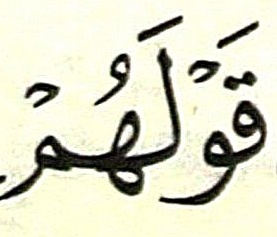 قَوْلَهُمْ